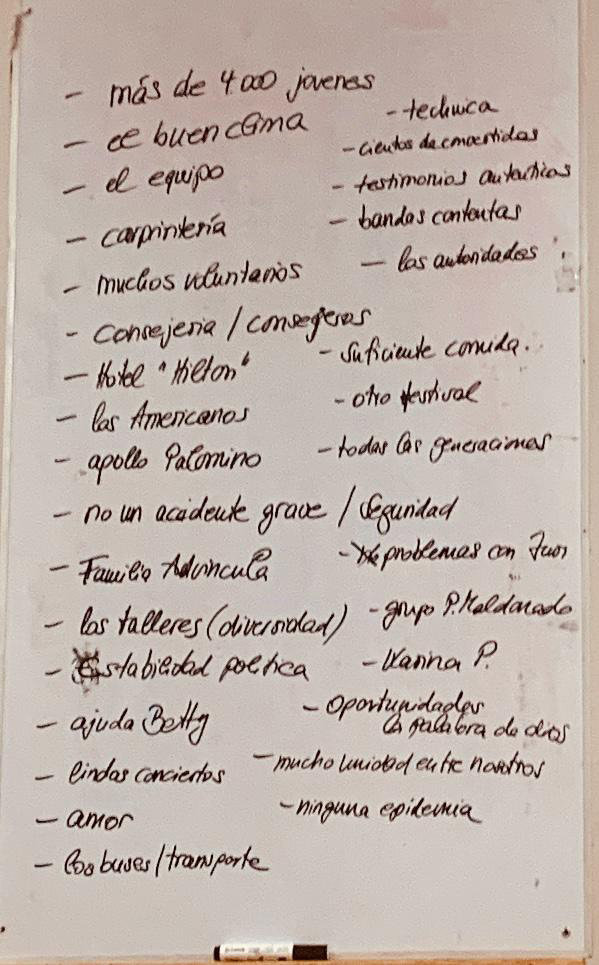 - más de 4000 jovenes
- ee buen clima
- el equipo
- carpintería
- muchos voluntarios
- consejeria / consegeros
- Hotel "Hilton"
- las Americanos
- apollo Palomino
- no un accidente grave / Seguridad
- Familia Advincula
- los talleres (diversidad)
- Estabilidad politica
- ajuda Betty
- lindas conciertos
- amor
- los buses / transporte
- technica
- cientos de convertidos
- testimonios autenticos
- bandas contentas
- las autoridades
- suficiente comida.
- otro festival
- todas las generaciones
- problemas con Juan
- grupo P. Maldonado
- Karina P.
- oportunidades
la palabra de dios
- mucho unidad entre nosotros
- ninguna epidemia